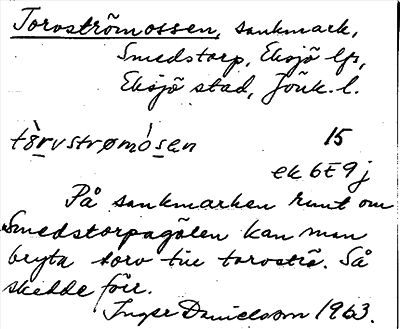 Torvströmossen, sankmark,
Smedstorp, Eksjö lfs,
Eksjö stad, Jönk. l.
tòrvstrømósen 15
ek 6E9j
På sankmarken runt om
Smedstorpagölen kan man
bryta torv till torvströ. Så
skedde förr.
Inger Danielsson 1963.